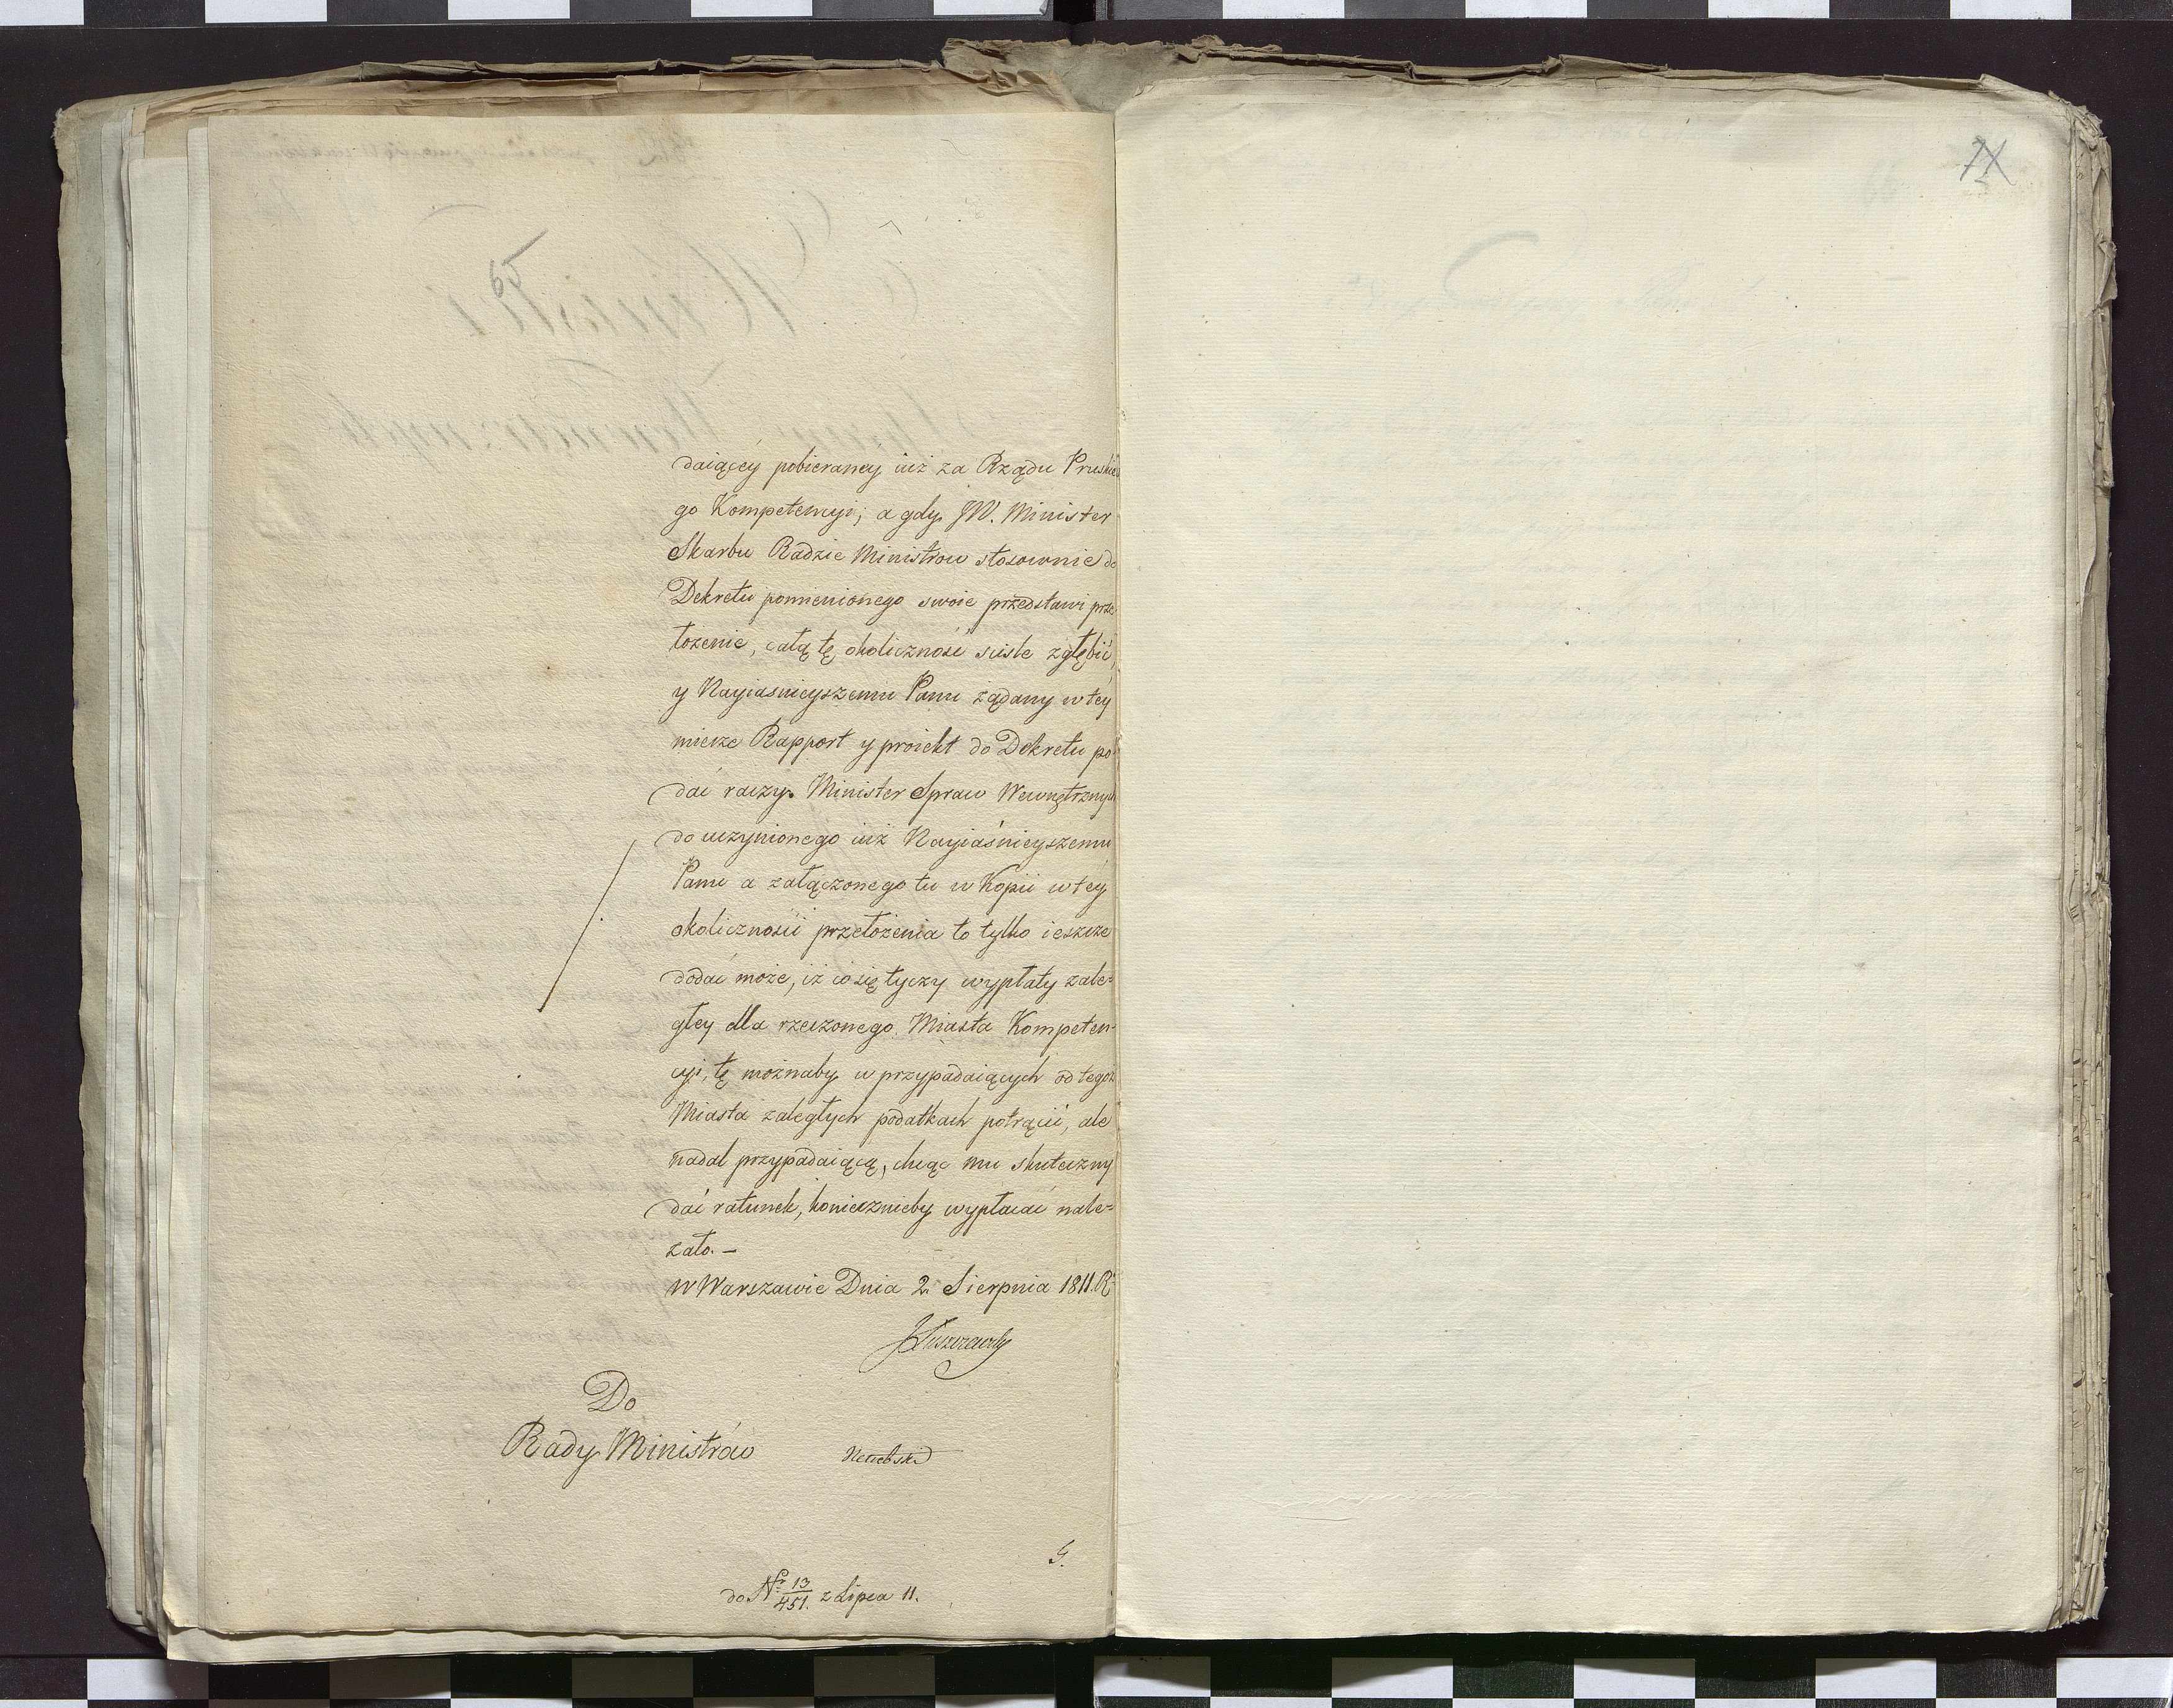 daiącéy pobieranéy iuż za Rządu Pruskie
go Kompetencyi; a gdy JW. Minister
Skarbu Radzie Ministrow stosownie do
Dekretu pomienionego swoie przedstawi prze
łożenie, całą tę okoliczność ściśle zgłębić,
y Nayiaśnieyszemu Panu żądany w tey
mierze Rapport y proiekt do Dekretu po-
dać raczy. Minister Spraw Wewnętrznych
do uczynionego iuż Nayiaśnieyszemu
Panu a załączonego tu w Kopii w tey
okoliczności przełożenia to tylko ieszcze
dodać może, iż co się tyczy wypłaty zale=
głey dla rzeczonego Miasta Kompeten-
cyi, tę możnaby w przypadaiących od tegoż
Miasta zaległych podatkach potrącić, ale
nadal przypadaiącą, chcąc mu skuteczny
dać ratunek, koniecznieby wypłacać nale=
żało. —
w Warszawie Dnia 2. Sierpnia 1811. R
JŁuszczewski
Do
Rady Ministrów
G.
do Nr 13/451. z Lipca 11.